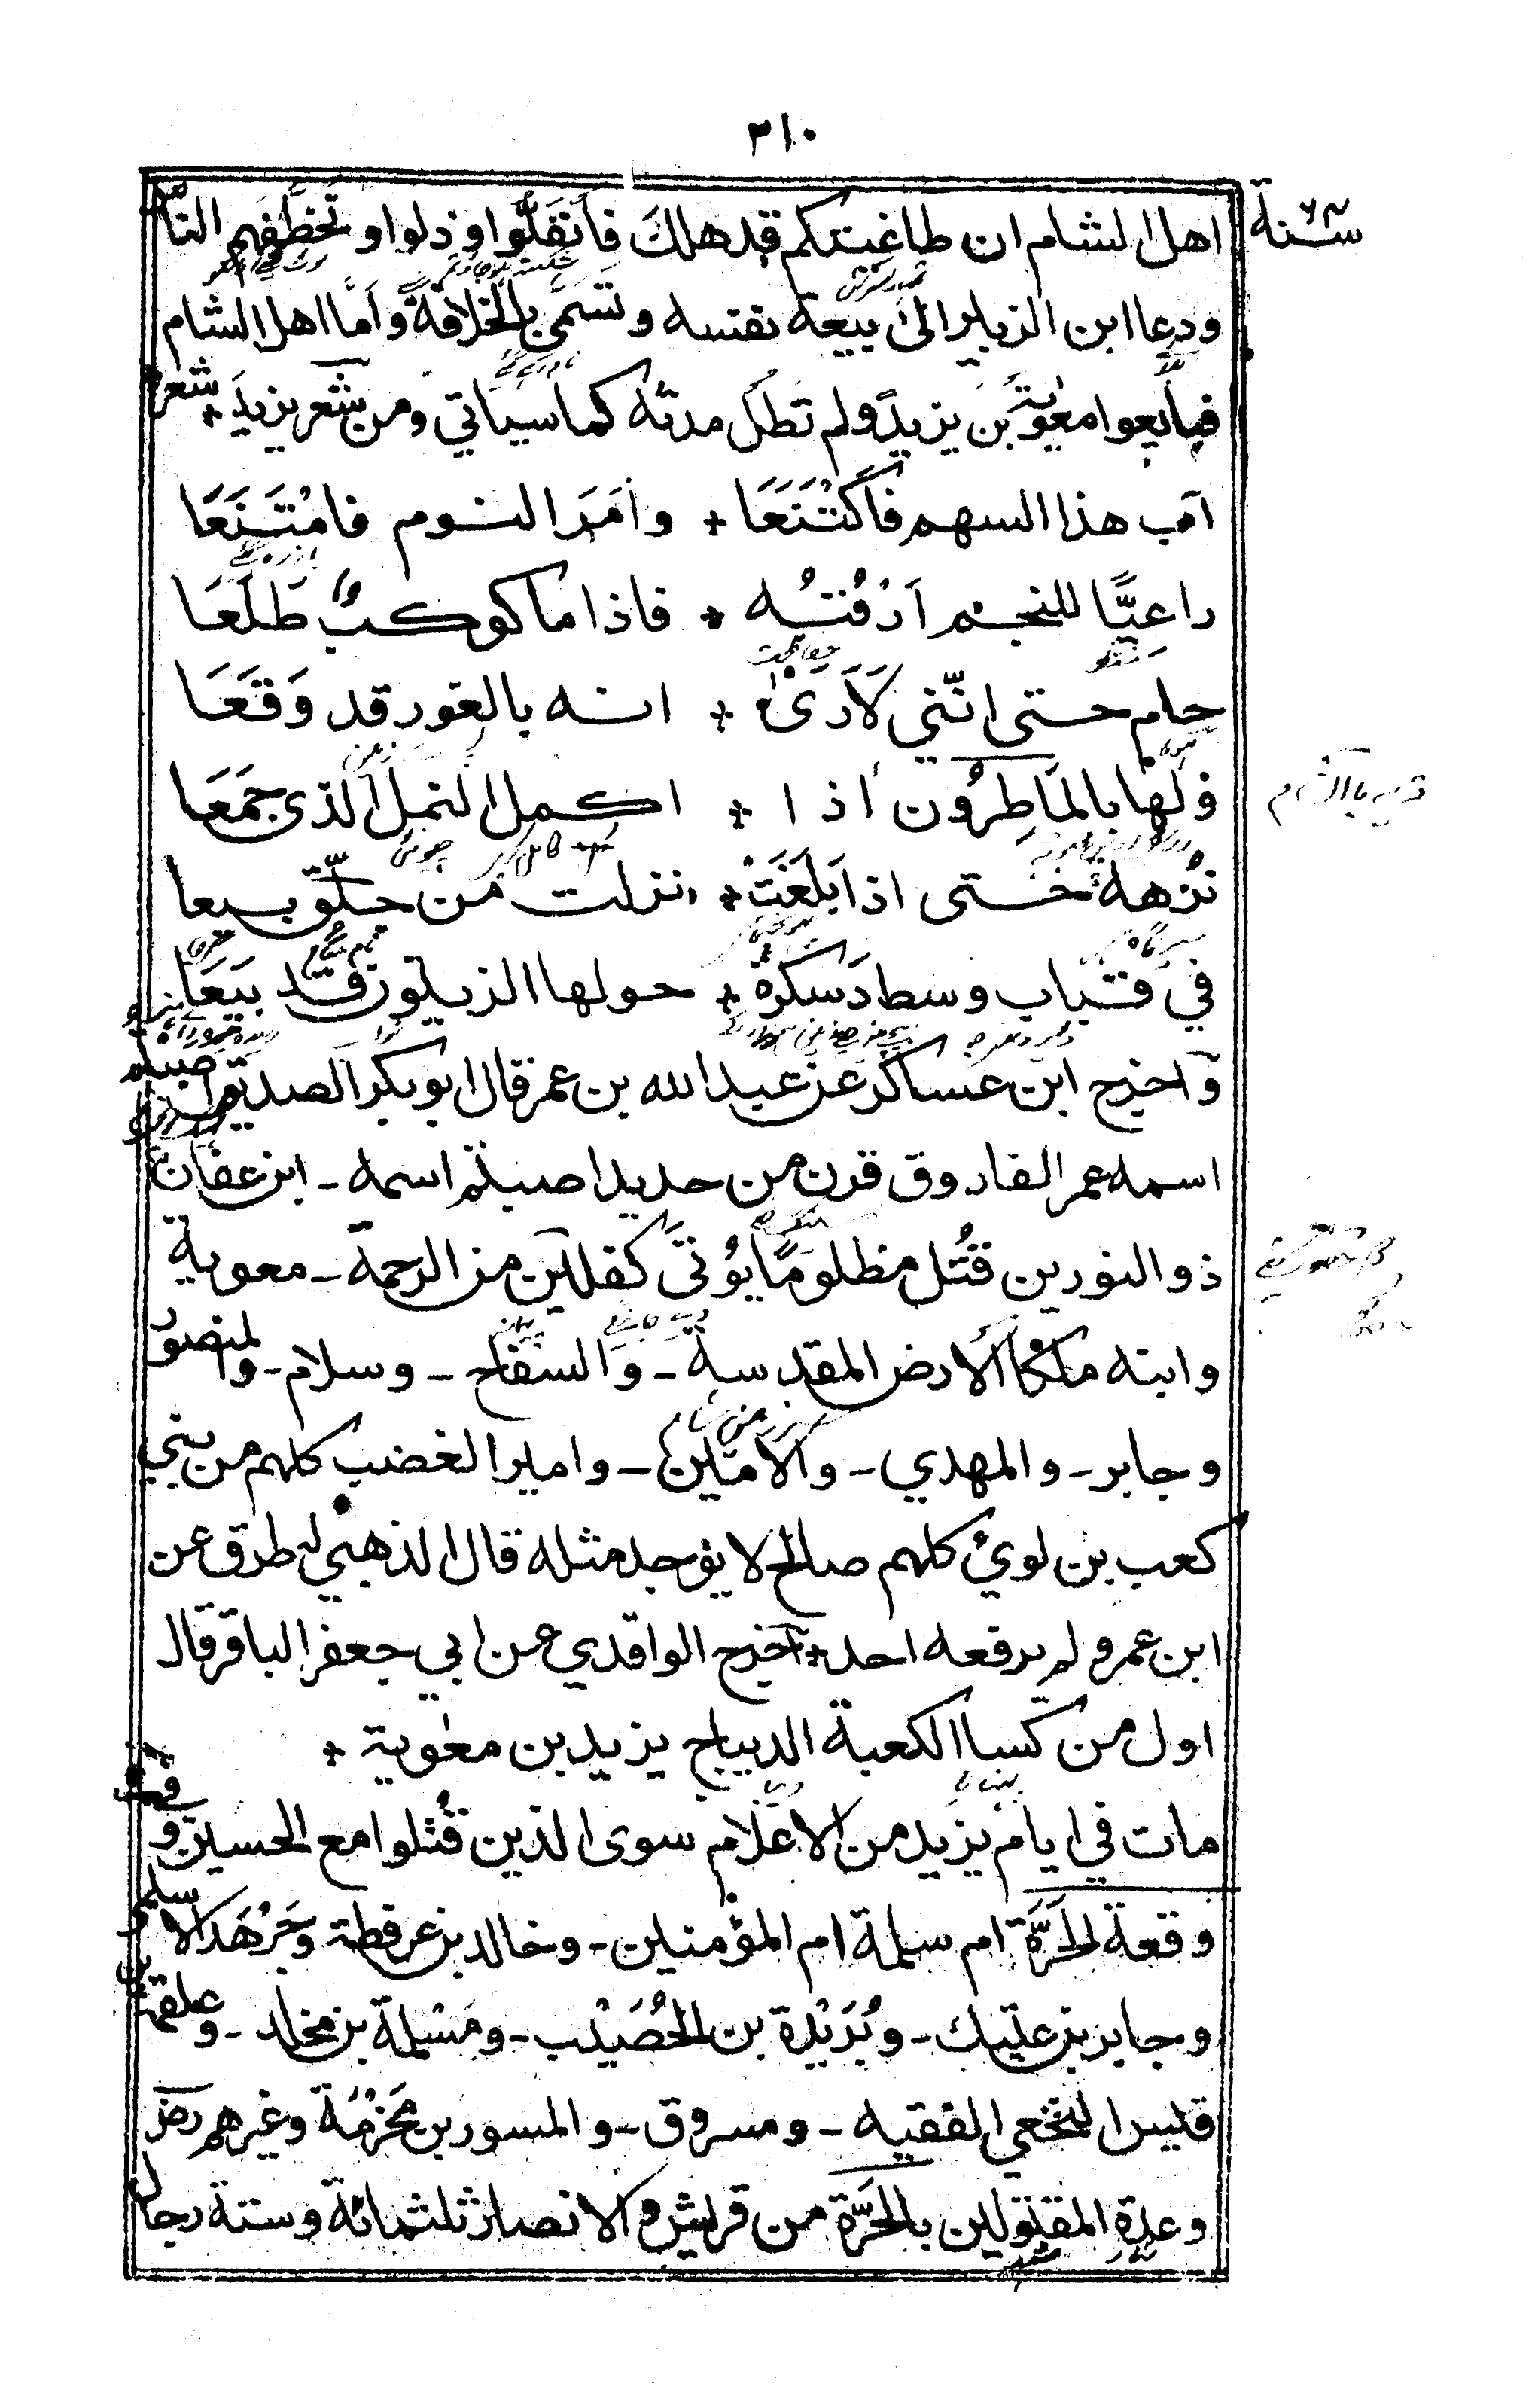 ٣١٠
سنة ٦٤
اهل الشام ان طاغيتكم قد هلك فانقلوا وذلوا وتخطفهم الناس
ودعا ابن الزبير الى بيعة نفسه وتسمى بالخلافة واما اهل الشام
فبايعوا معوية بن يزيد ولم تطل مدته كما سياتي ومن شعر يزيد * شعر
آب هذا السهم فَاكْتَنَعَا * وامَرَ النوم فامْتَنَعَا
راعيًّا للنجم اَرْقُبُه * فاذا ما كوكبٌ طَلَعَا
حام حتى انّني لَاَرى * انه بالغور قد وَقَعَا
ولها بالمَاطِرُون اذا * اكمل النمل الذى جَمَعَا
نُزْهة حتى اذا بَلَغَتْ * نزلت من جلّق بيعا
في قباب وسط دَسْكَرة * حولها الزيتون قد يَنَعَا
واخرج ابن عساكر عن عبد الله بن عمر قال ابو بكر الصديق اصبتم
اسمه عمر الفاروق قرن من حديد اصبتم اسمه - ابن عفان
ذو النورين قُتل مظلومًا يُؤتى كفلين من الرحمة - معوية
وابنه ملكا الارض المقدسة - والسفاح - وسلام - والمنصور
وجابر - والمهدي - والامين - وامير الغضب كلهم من بني
كعب بن لوي كلهم صالح لا يوجد مثله قال الذهبي له طرق عن
ابن عمر ولم يرفعه احد * اخرج الواقدي عن ابي جعفر الباقر قال
اول من كسا الكعبة الديباج يزيد بن معوية *
مات في ايام يزيد من الاعلام سوى الذين قُتلوا مع الحسين وفي
وقعة الحَرَّة ام سلمة ام المؤمنين - وخالد بن عرفطة وجَرْهَد الاسلمي
وجابر بن عتيك - وبُرَيْدة بن الحُصَيْب - ومَسْلمة بن مخلد - وعلقمة بن
قيس النخعي الفقيه - ومسروق - والمسور بن مَخْرَمة وغيرهم رض
وعدة المقتولين بالحَرَّة من قريش والانصار ثلثمائة وستة رجال